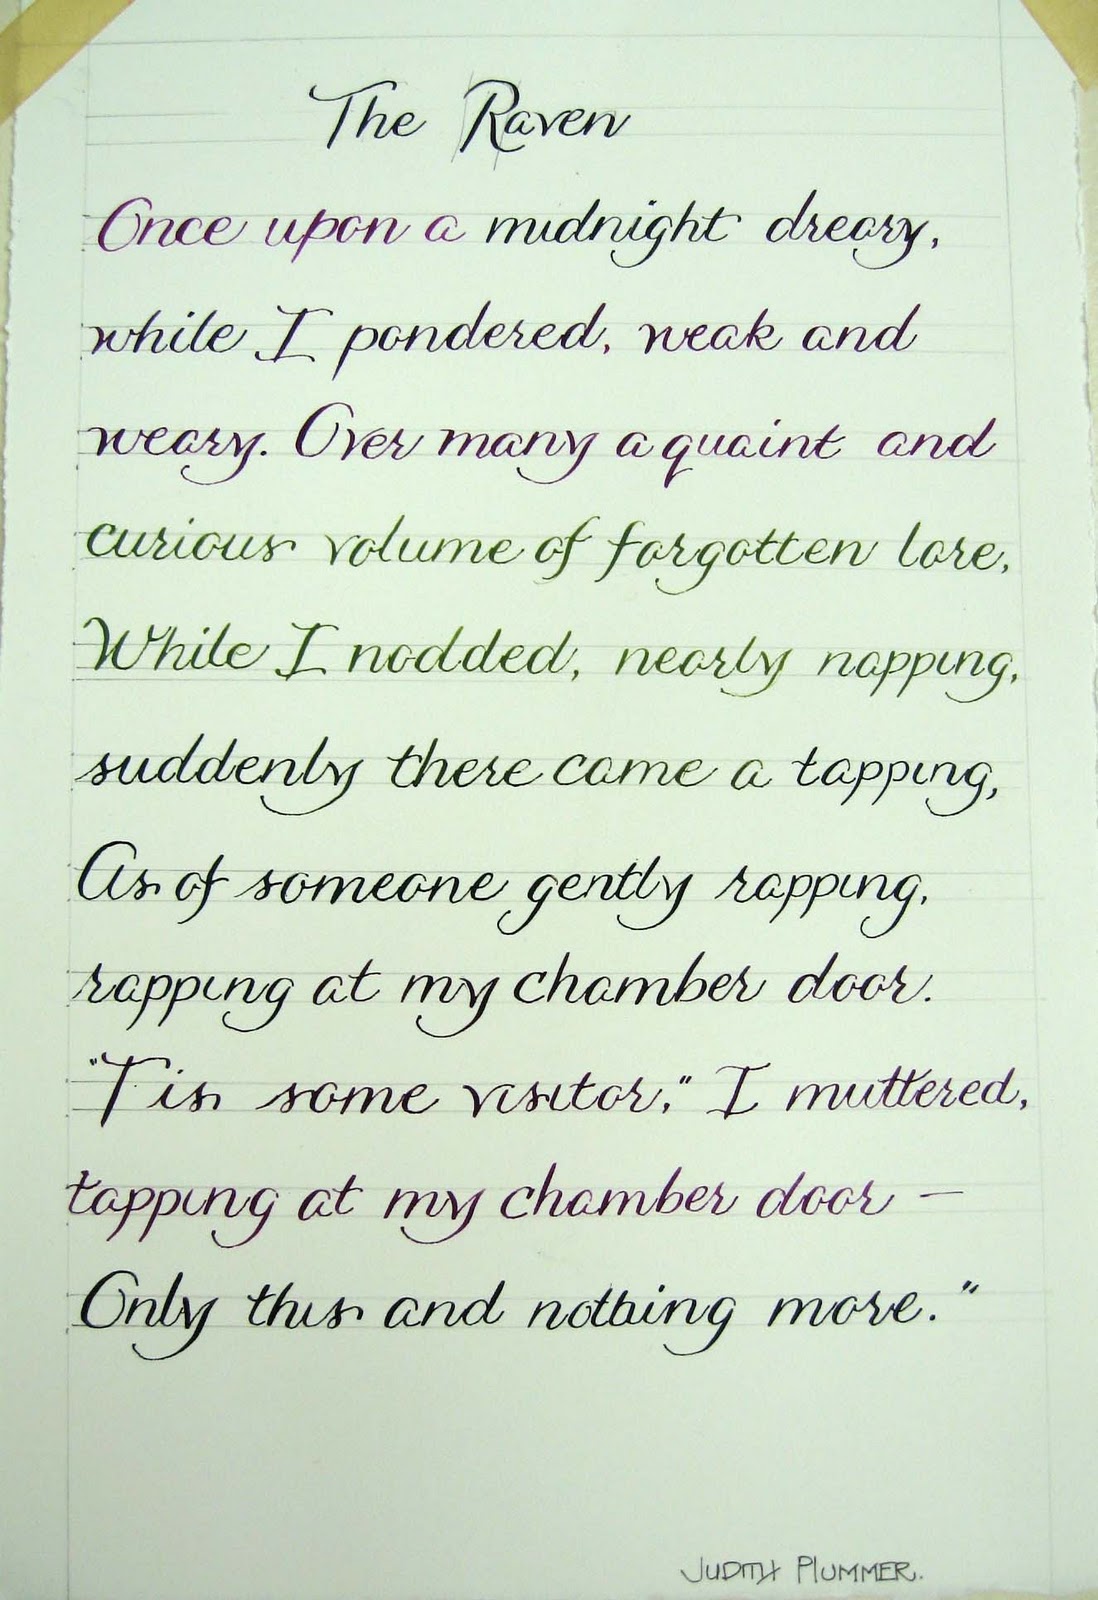 The Raven
Once upon a midnight dreary,
while I pondered, weak and
weary. Over many a quaint and
curious volume of forgotten lore,
While I nodded, nearly napping,
suddenly there came a tapping,
As of someone gently rapping,
rapping at my chamber door.
"Tis some visitor," I muttered,
tapping at my chamber door —
Only this and nothing more."
JUDITH PLUMMER.